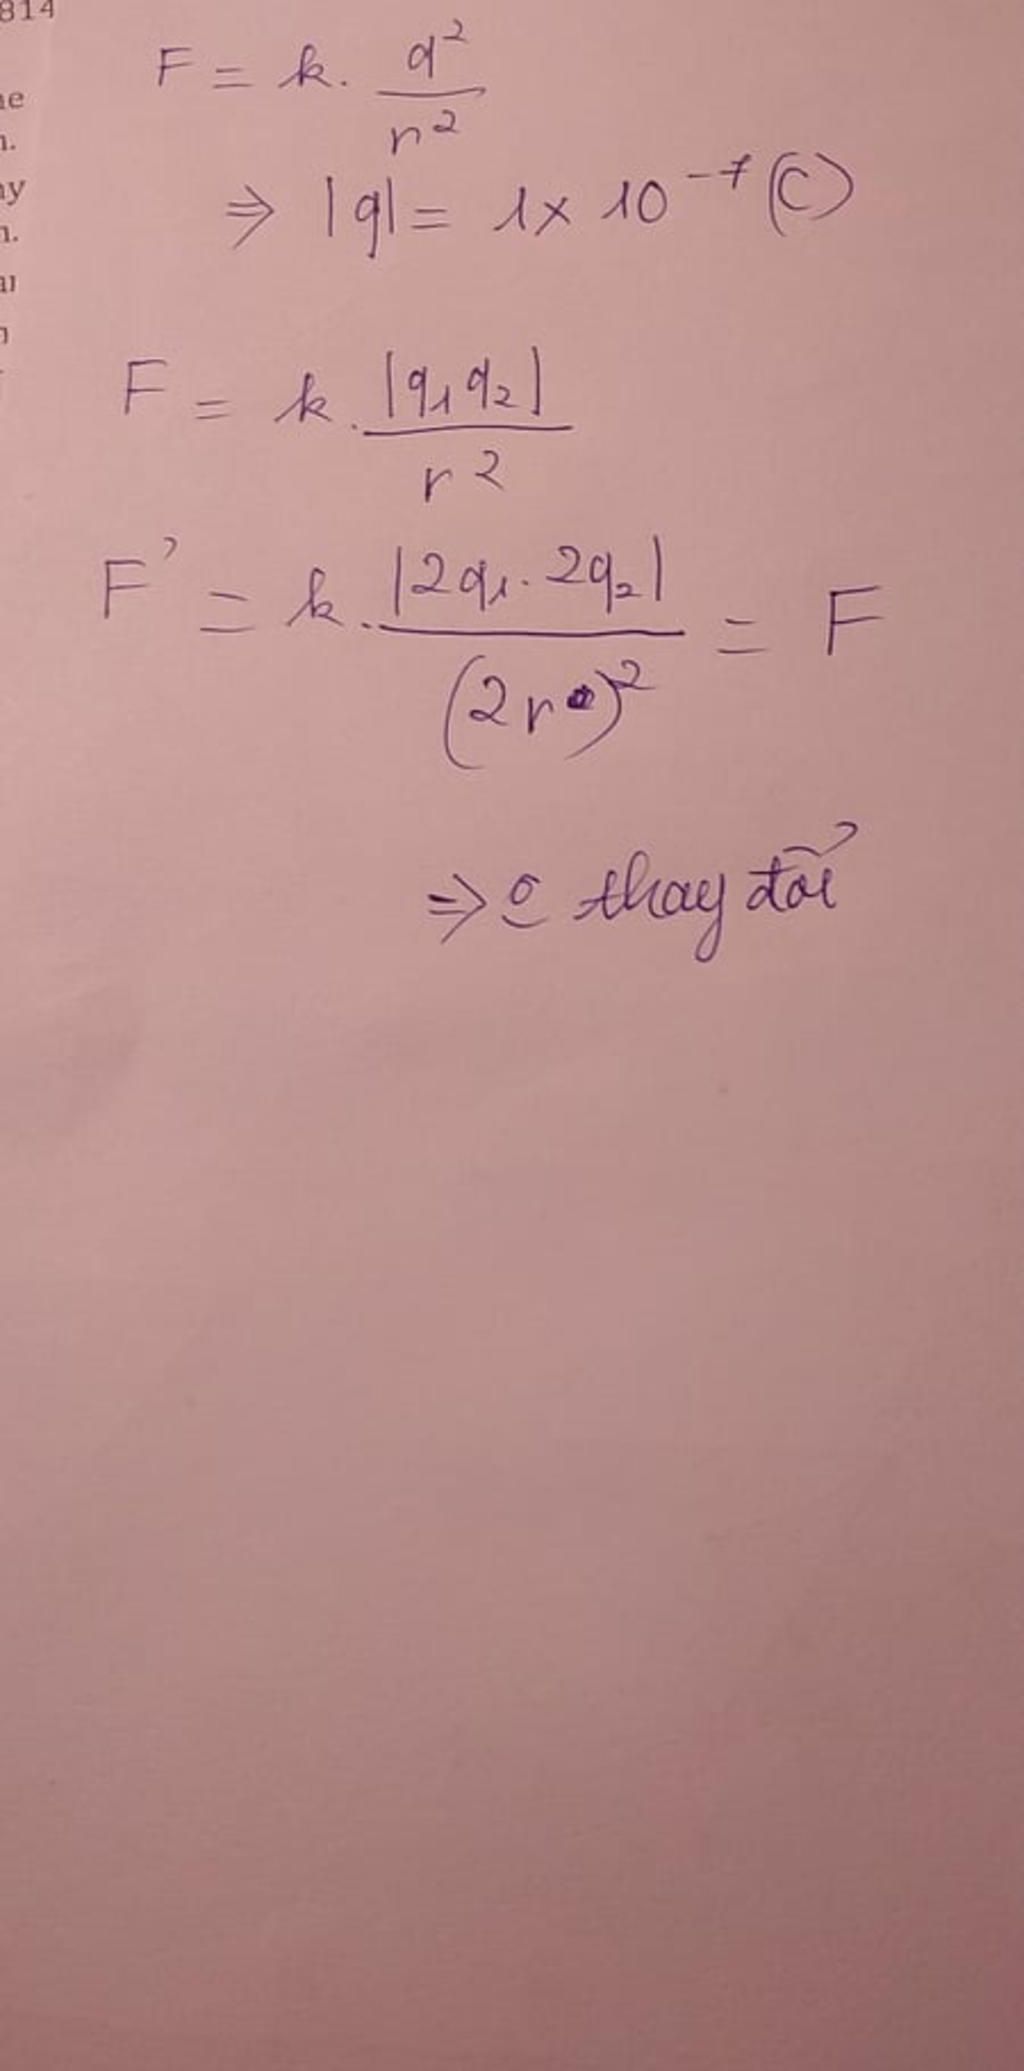 814
F = k. q²/r²
⇒ |q| = 1 x 10⁻⁷ (C)
F = k. |q₁q₂|/r²
F' = k. |2q₁. 2q₂|/(2r)² = F
⇒ o thay đổi